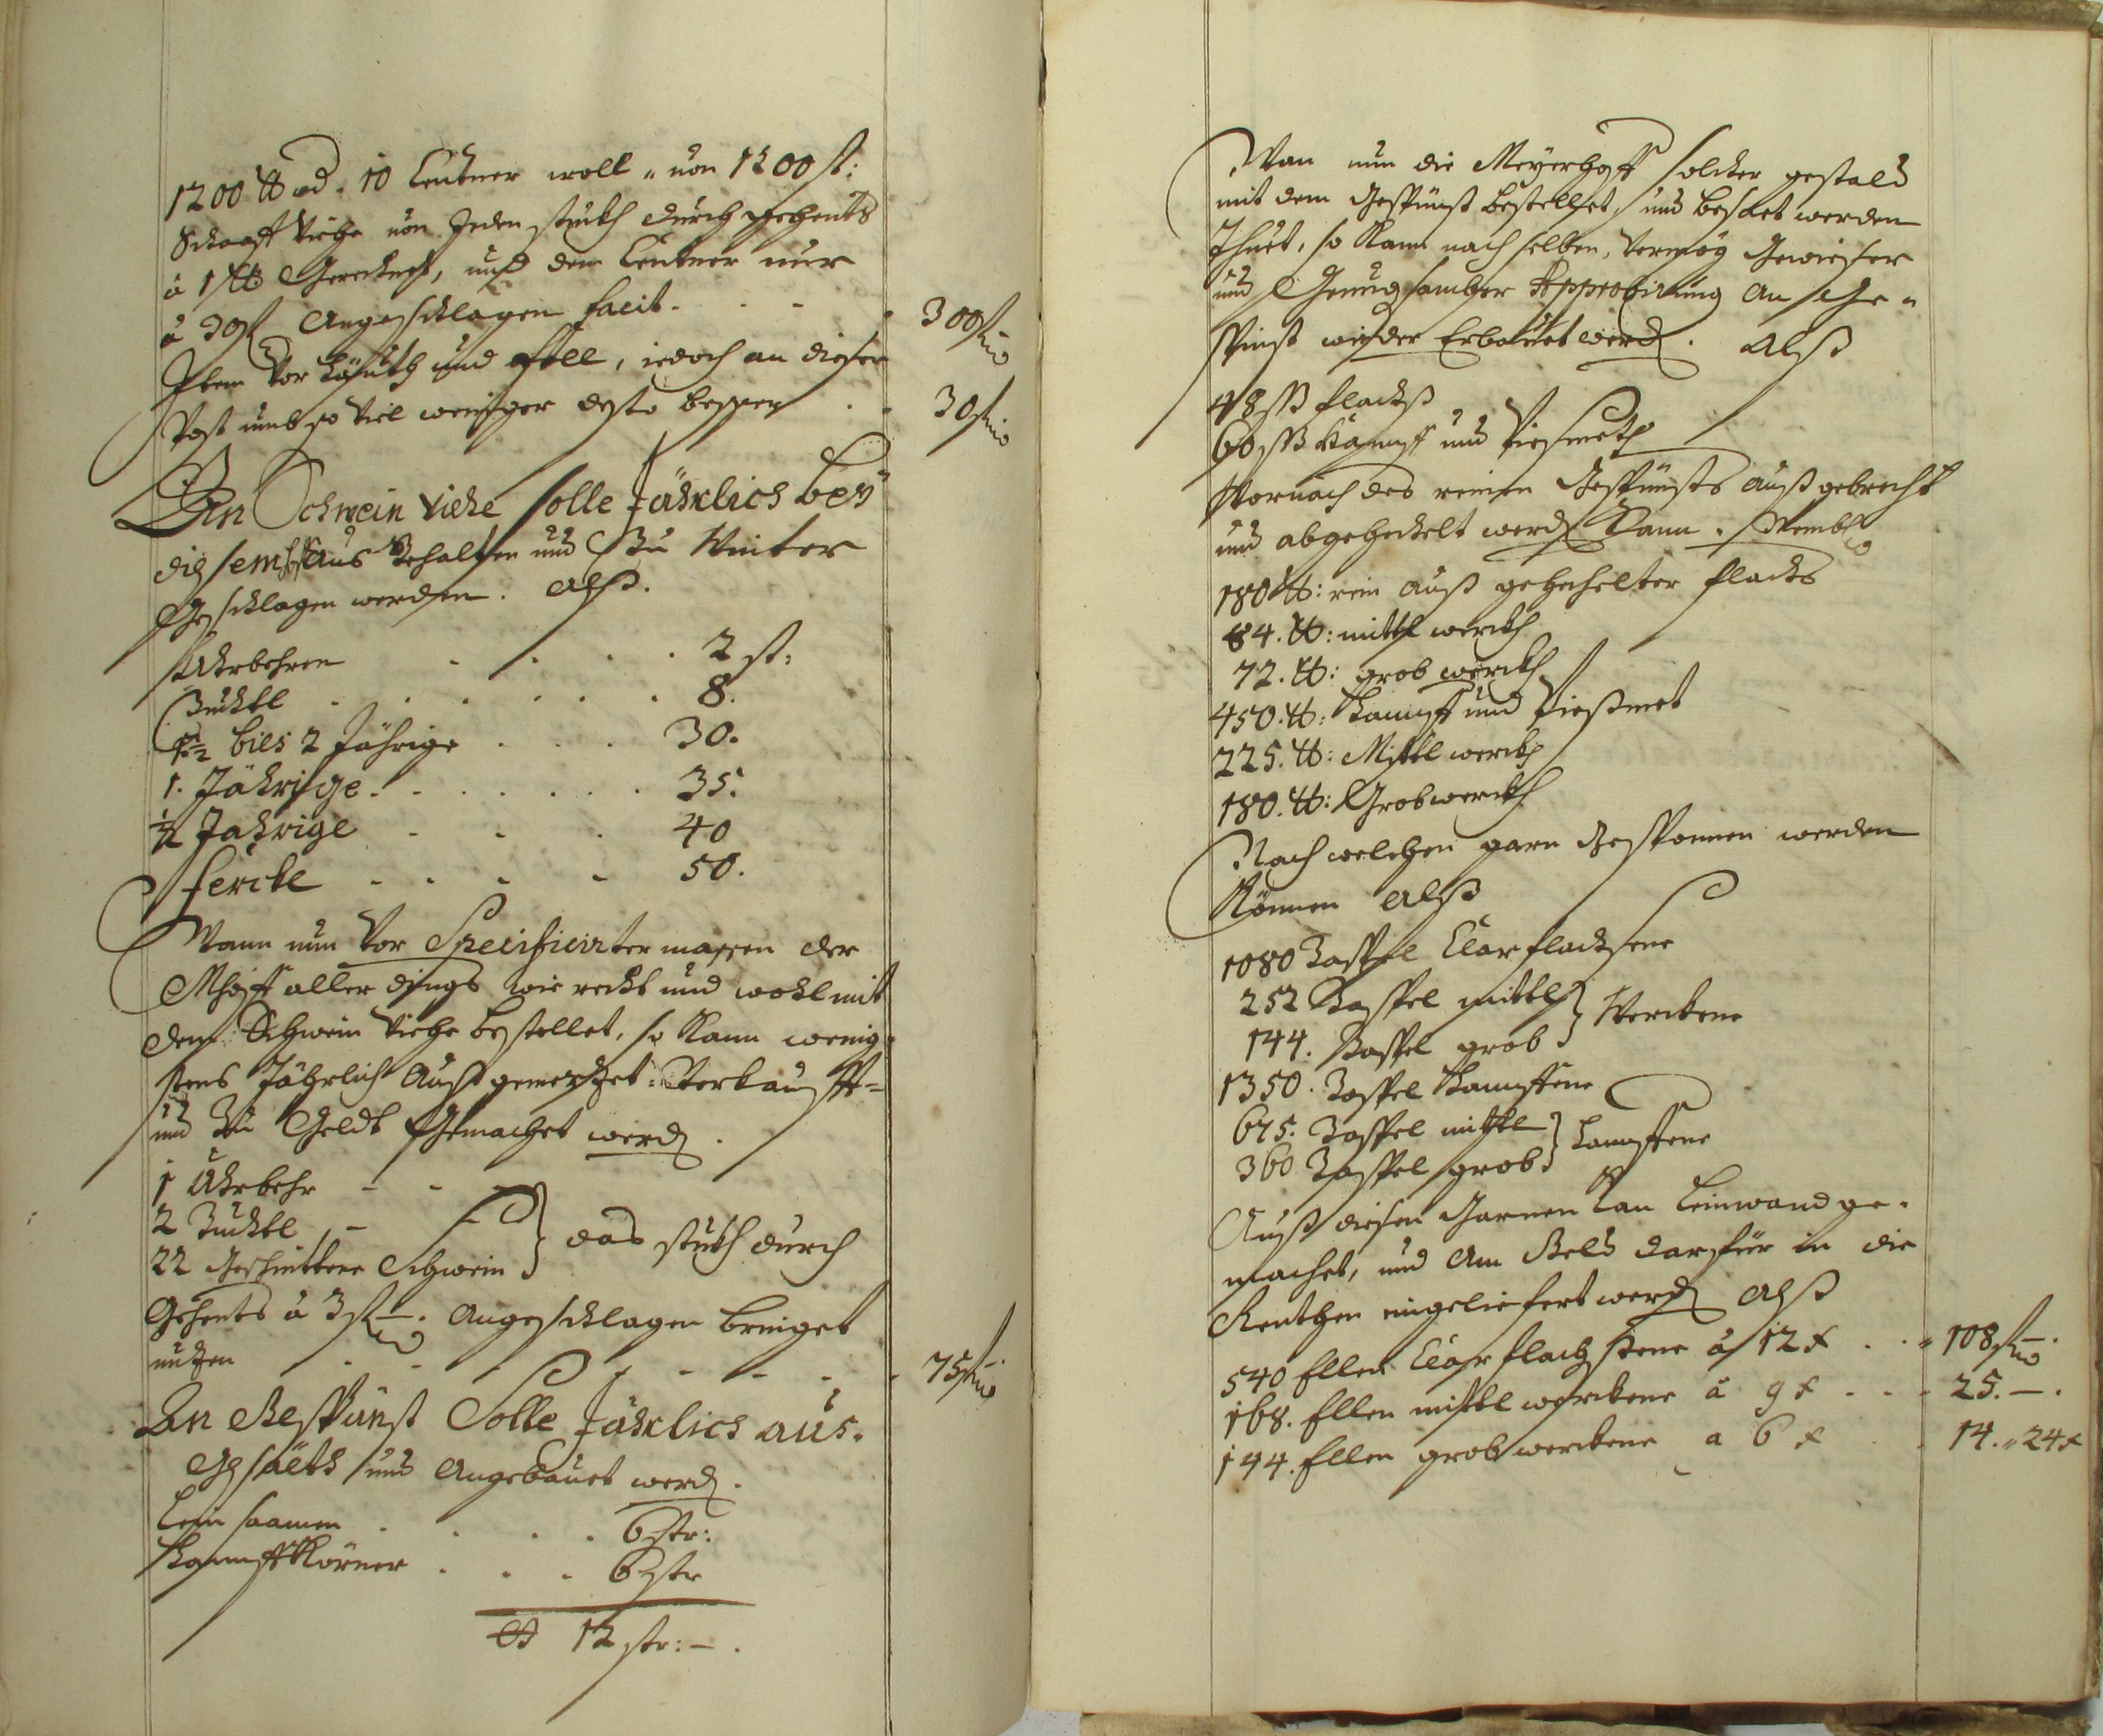 1200 ℔ od. 10 Centner woll von 1200 st:
Schaaff Viehe von Jeden stuckh durch gehents
â 1 ℔ Gerechnet, und den Centner nur
â 30 fl Angeschlagen facit . . . 300 fl
Item vor Häuth und föll, iedoch an dieser
Post umb so viel weniger desto besser . . 30 fl
An Schwein viehe solle Jährlich beÿ
diesem haus Behalten und Zu Winter
Geschlagen werden. Alß.
Uhrbehren . . . . 2 st:
Zuchtl . . . . . . 8.
1½ bies 2 Jährige . . . 30.
1. Jährige . . . . . . 35.
½ Jahrige . . . 40
ferckl . . . . 50.
Wann nun vor Specificirter massen der
Mhoff aller dings wie recht und wohl mit
dem Schwein viehe bestellet, so kann wenig-
stens Jährlich Auß gemerzet: Verkaufft-
und Zu Geldt Gemachet werd.
1 Uhrbehr - - -
2 Zuchtl - -
22 Geschnittene Schwein } das stuckh durch
Gehents â 3 fl —. Angeschlagen bringet
nutzen . - - - - - 75 fl
An Gespünst Solle Jährlich aus.
Gesäeth und Angebauet werd.
Lein saamen . . . . 6 str:
Hanff Körner . . . 6 str
12 str: — .
Wan nun die Meÿerhoff solcher gestald
mit dem Gespünst bestellet, und besäet werden
Thuet, so kann nach selben, vermög Gewieser
und Genugsamber Approbirung an Ge-
spünst wieder Erbauet werd. Alß
48 ß flachß
60 ß Hanff und
Wornach des reinen Gespünsts auß gebrecht
und abgehechelt werd kann. Nembl
180 ℔: rein auß gehechelter flachs
84. ℔: mittl werckh
72. ℔: grob werckh
450. ℔: Hanff und
225. ℔: Mittl werckh
180. ℔: Grobwerckh
Nach welchen garn Gesponnen werden
können Alß
1080 Zaspel Clar flachsene
252 Zaspel mittl
144. Zaspel grob } Werckene
1350. Zaspel Hanffene
675. Zaspel mittl
360 Zaspel grob } Hanffene
Auß diesen Garnen kan Leinwand ge-
machet, und Am Geld darfür in die
Renthen eingeliefert werd Alß
540 Ellen Clar flachsene â 12 x . . 108 fl —.
168. Ellen mittl werckene â 9 x . . . 25. —.
144. Ellen grob werckene a 6 x . . 14. 24 x